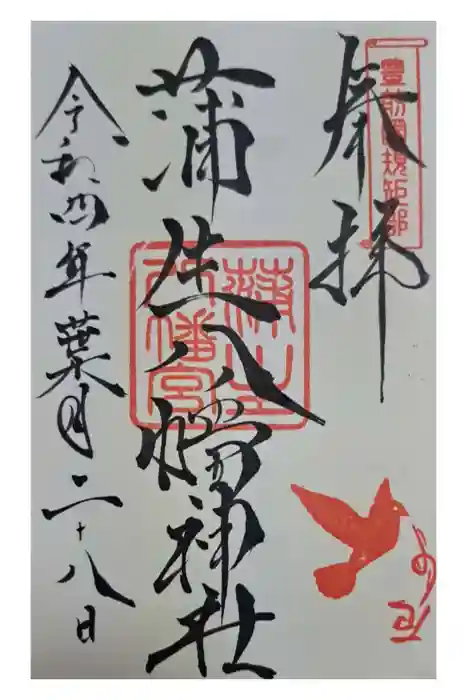 奉拝
豊前國規矩郡
蒲生八幡神社
令和四年葉月二十八日